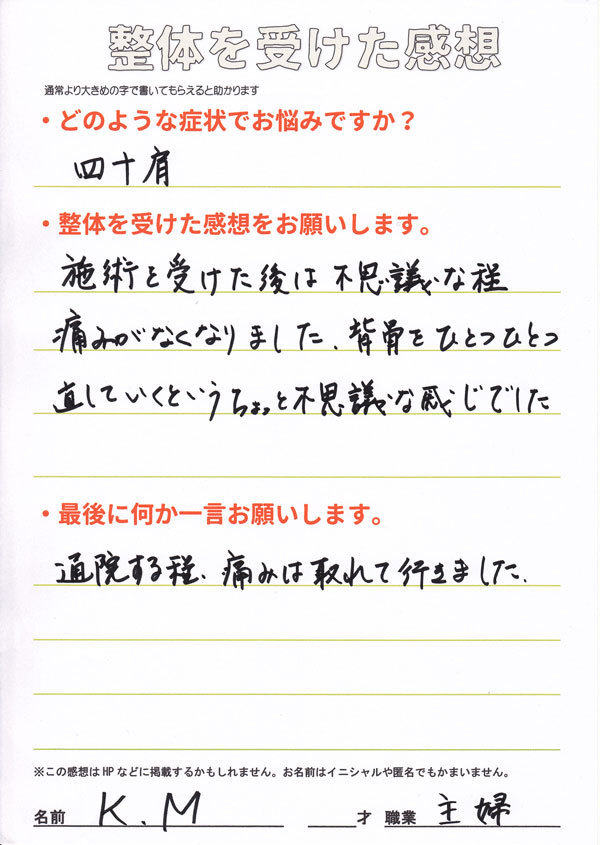 整体を受けた感想
通常より大きめの字で書いてもらえると助かります
・どのような症状でお悩みですか？
四十肩
・整体を受けた感想をお願いします。
施術を受けた後は不思議な程
痛みがなくなりました、背骨をひとつひとつ
直していくというちょっと不思議な感じでした
・最後に何か一言お願いします。
通院する程、痛みは取れて行きました、
※この感想はHPなどに掲載するかもしれません。お名前はイニシャルや匿名でもかまいません。
名前 K.M 才 職業 主婦